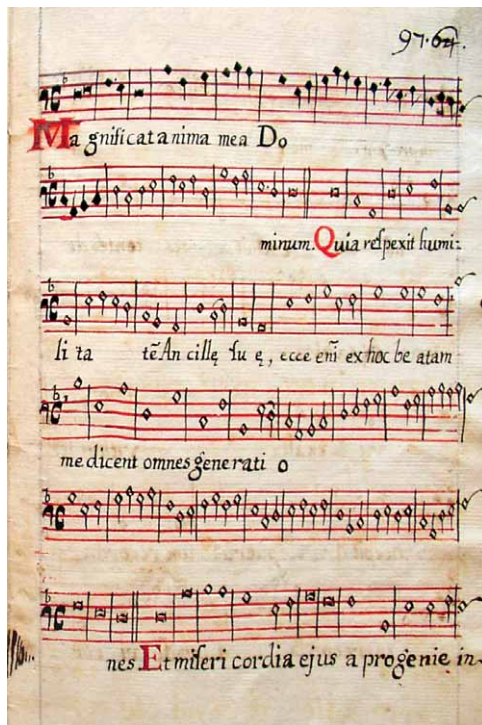 97. 64.
Ma gnificat anima mea Do
minum. Quia reſpexit humi-
li ta tē An cillę ſu ę, ecce em̄ ex hoc be atam
me dicent omnes generati o
nes. Et miſeri cordia ejus a progenie in-